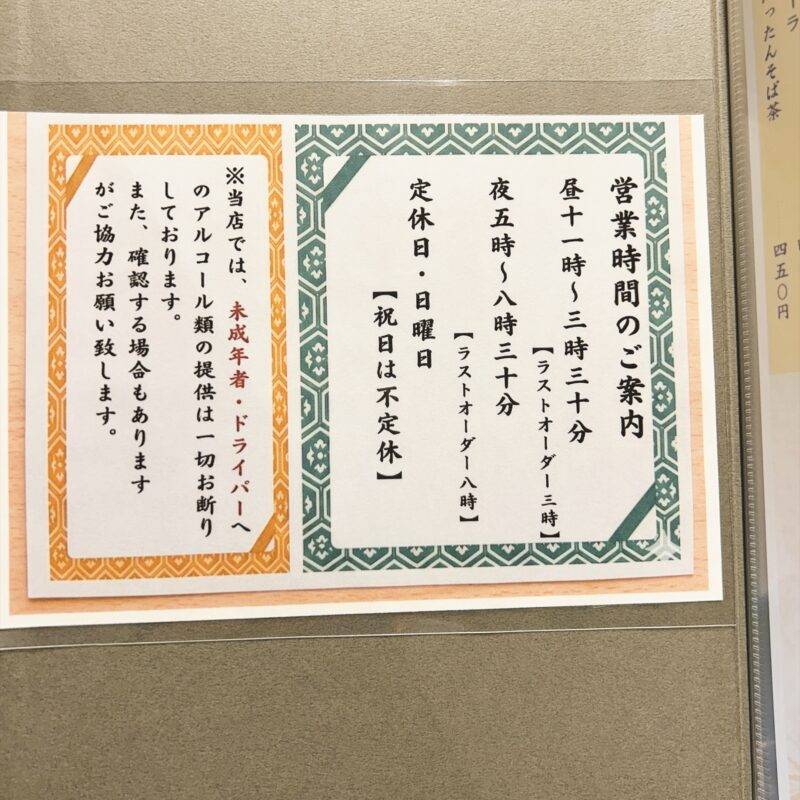 ったんそば茶
四五〇円
営業時間のご案内
昼十一時～三時三十分
【ラストオーダー三時】
夜五時～八時三十分
【ラストオーダー八時】
定休日・日曜日
【祝日は不定休】
※当店では、未成年者・ドライバーへ
のアルコール類の提供は一切お断り
しております。
また、確認する場合もあります
がご協力お願い致します。